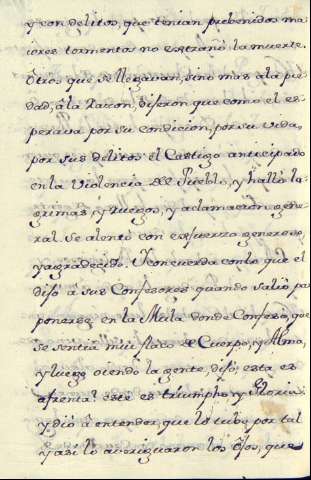 y con delitos, que tenian prebenidos ma
iores tormentos no estrañó la muerte.
Otros que se llegavan, sino mas a la pie
dad, â la Raçon, dijeron que como el es
perava por su condicion, por su vida,
por sus delitos el Castigo anticipado
en la Violencia del Pueblo, y halló la
grimas, y ruegos, y aclamacion gene
ral se alentó con esfuerzo generoso,
y agradecido. Y concuerda con lo que el
dijo â sus Confesores quando salió pa
ponerse en la Mula donde Confesó, que
se sentia mui flaco de Cuerpo, y Alma,
y luego oiendo la gente, dijo, esta es
afrenta? este es triumpho, y Gloria
y dió â entender, que lo tubo por tal
y asi lo averiguaron los Ojos, que